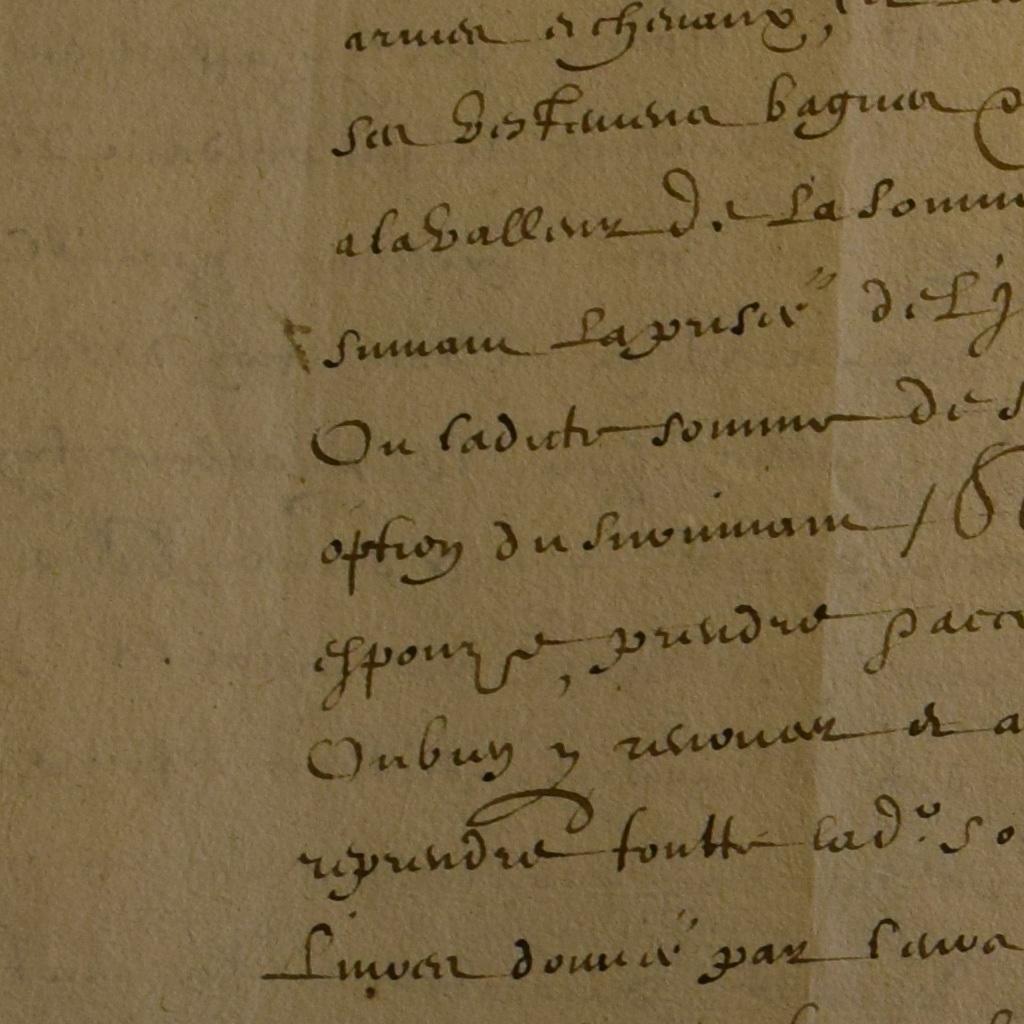 armes et chevaux,
ses vestemens bagues et
a la valleur de la somm
suivant la prisée de l'j
Ou ladicte somme de s
option du survivant /
espouze, prendre pacc
Ou bien y renoncer et a
reprendre toutte lad.e so
livres donnée par